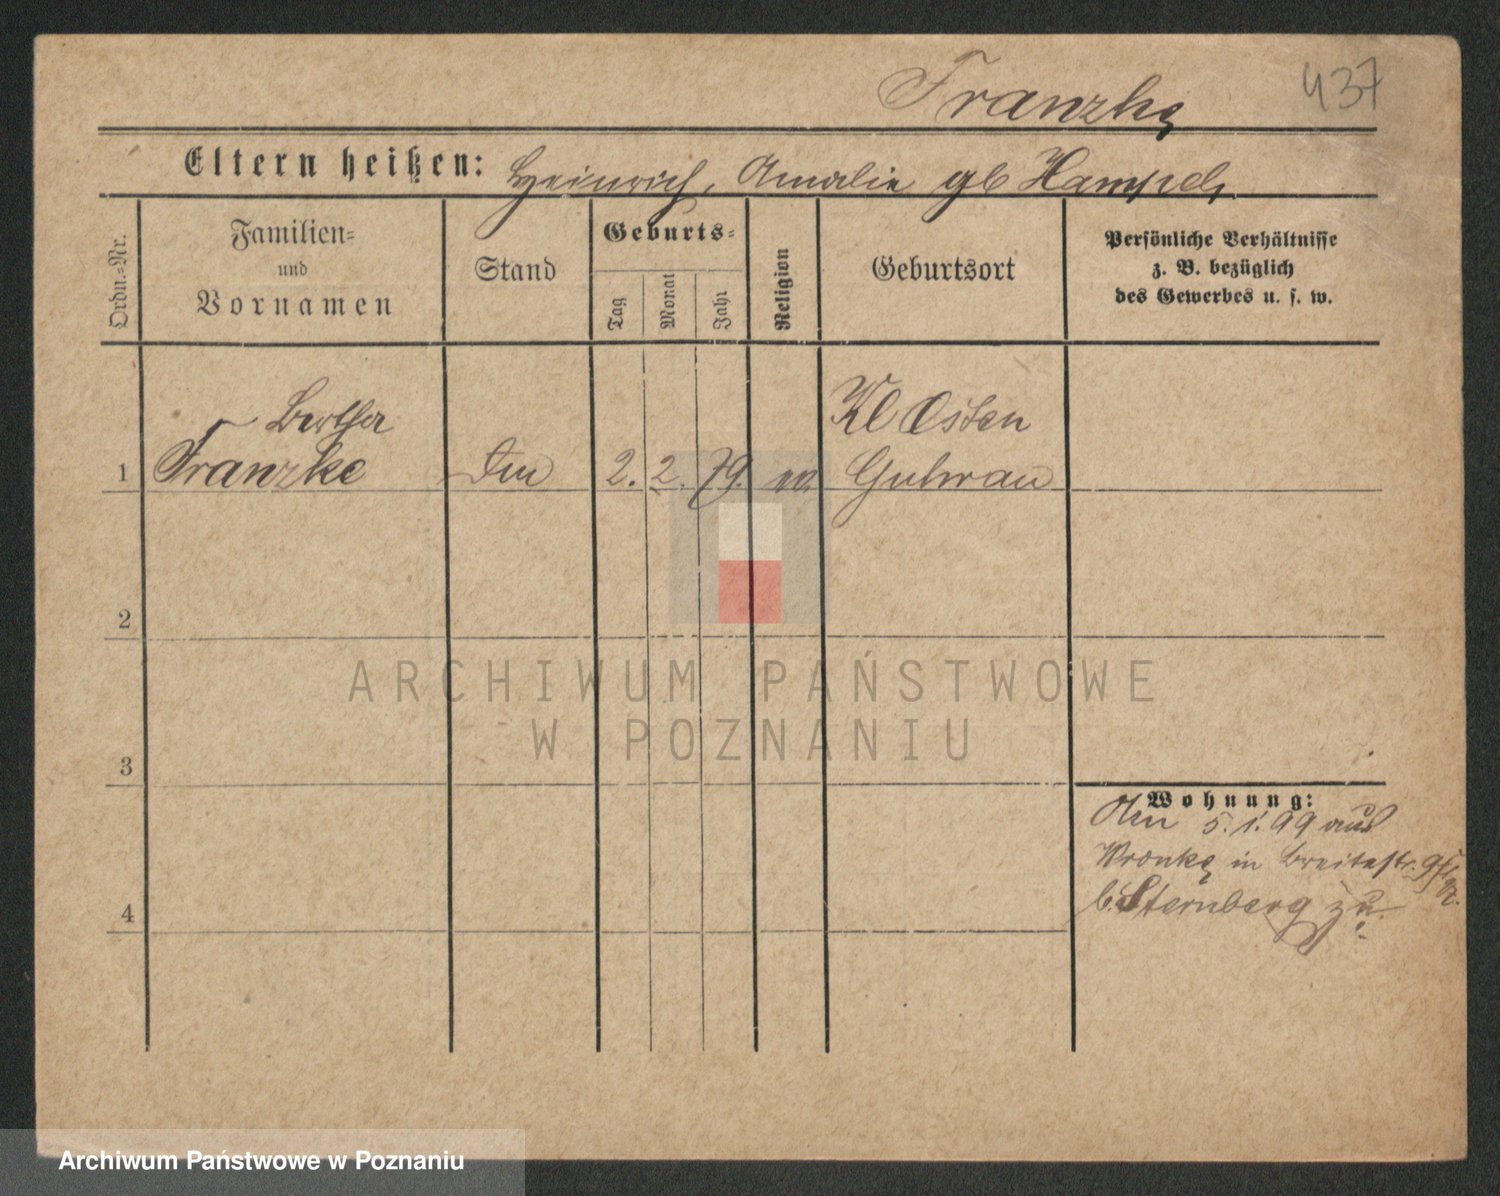 Franzke
437
Eltern heißen: Heinrich, Amalie gb Hampel,
Ordn.=Nr.
Familien=
und
Vornamen
Stand
Geburts=
Tag
Monat
Jahr
Religion
Geburtsort
Persönliche Verhältnisse
z. B. bezüglich
des Gewerbes u. s. w.
Bertha
Kl Osten
1 Franzke 2. 2. 79. Guhrau
2
ARCHIWUM PAŃSTWOWE
W POZNANIU
3
Wohnung:
5. 1. 99 aus
Wronke in Breitestr.
b. Sternberg zu.
4
Archiwum Państwowe w Poznaniu